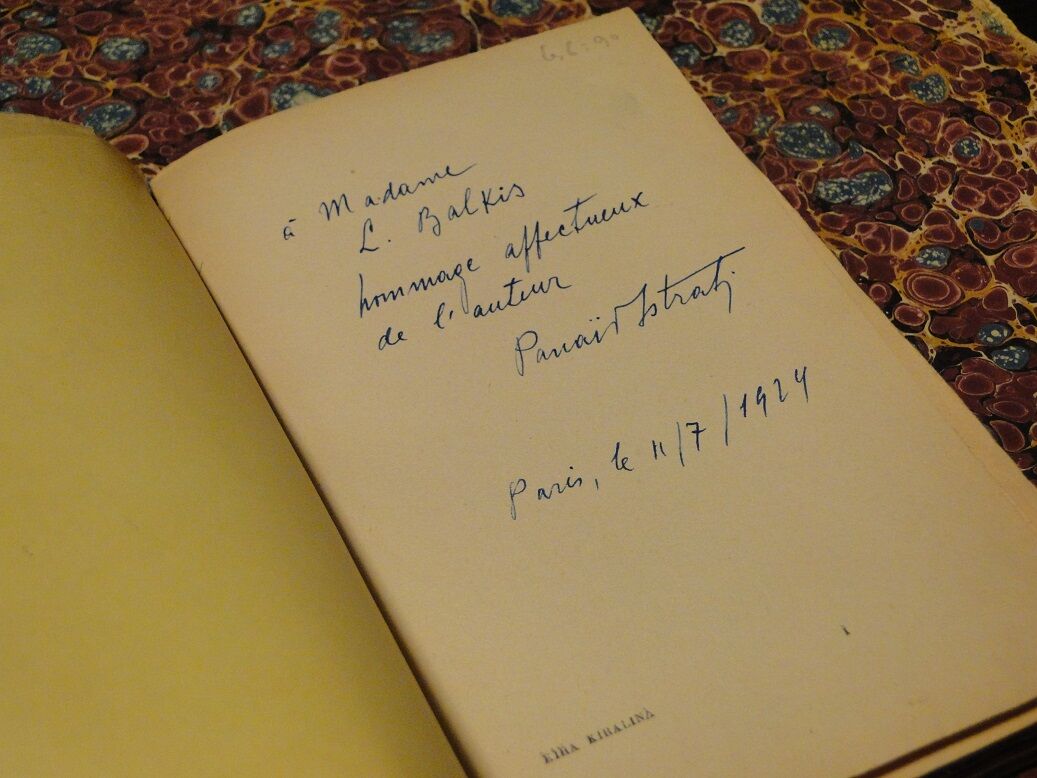 à Madame
L. Balkis
hommage affectueux
de l'auteur
Panaït Istrati
Paris, le 11/7/1924
1
KYRA KYRALINA